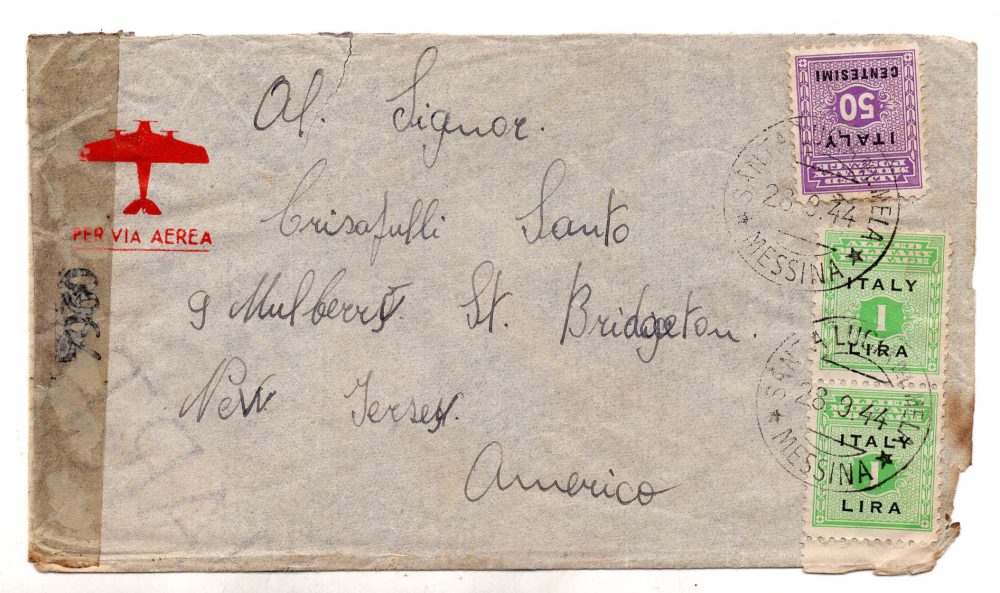 Al. Signor.
Crisafulli Santo
9 Mulberry St. Bridgeton.
New Jersey.
America
PER VIA AEREA
CENTESIMI
50
ITALY
ALLIED MILITARY POSTAGE
SANTA LUCIA DEL MELA
28.9.44
MESSINA
ALLIED MILITARY POSTAGE
ITALY
1
LIRA
SANTA LUCIA DEL MELA
28.9.44
MESSINA
ALLIED MILITARY POSTAGE
ITALY
1
LIRA